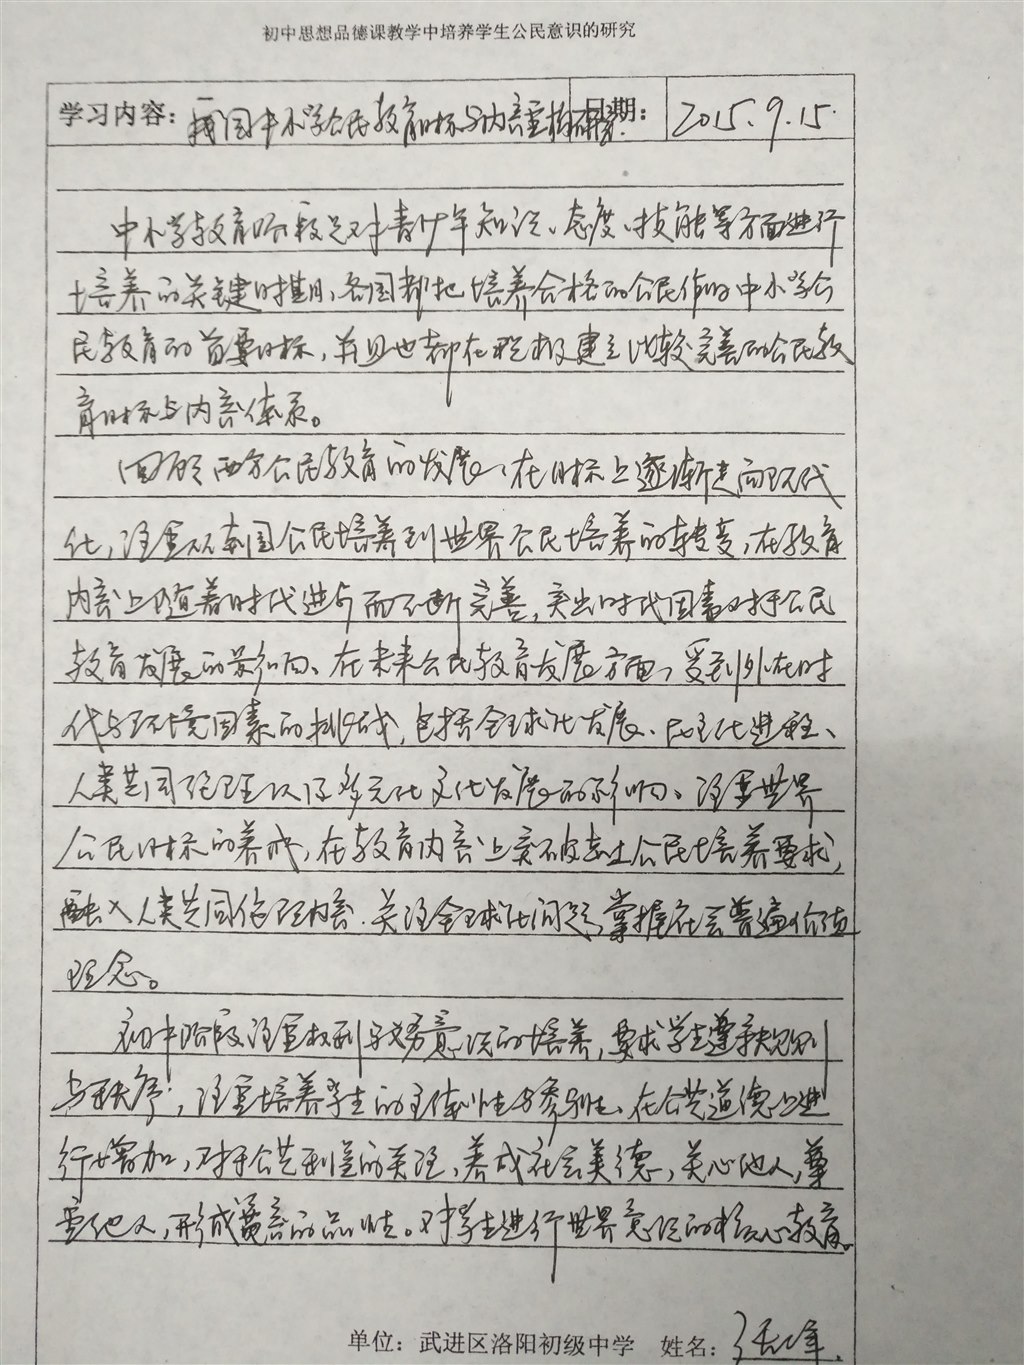 初中思想品德课教学中培养学生公民意识的研究
学习内容：我国中小学公民教育目标与内容重构研究. 日期： 2015.9.15.
中小学教育阶段是对青少年知识、态度、技能等方面进行
培养的关键时期，各国都把培养合格的公民作为中小学公
民教育的首要目标，并且也都在积极建立比较完善的公民教
育目标与内容体系。
回顾西方公民教育的发展，在目标上逐渐走向现代
化，注重从本国公民培养到世界公民培养的转变，在教育
内容上随着时代进步而不断完善，突出时代因素对于公民
教育发展的影响、在未来公民教育发展方面，受到外在时
代与环境因素的挑战，包括全球化发展、民主化进程、
人类共同伦理以及多元化文化发展的影响、注重世界
公民目标的养成，在教育内容上突破本土公民培养要求，
融入人类共同伦理内容.关注全球化问题，掌握社会普遍价值
理念。
初中阶段注重权利与义务意识的培养，要求学生遵守规则
与秩序，注重培养学生的主体性与参与性、在公共道德上进
行增加，对于公共利益的关注，养成社会美德，关心他人，尊
重他人，形成宽容的品性。对学生进行世界意识的核心教育。
单位：武进区洛阳初级中学 姓名：